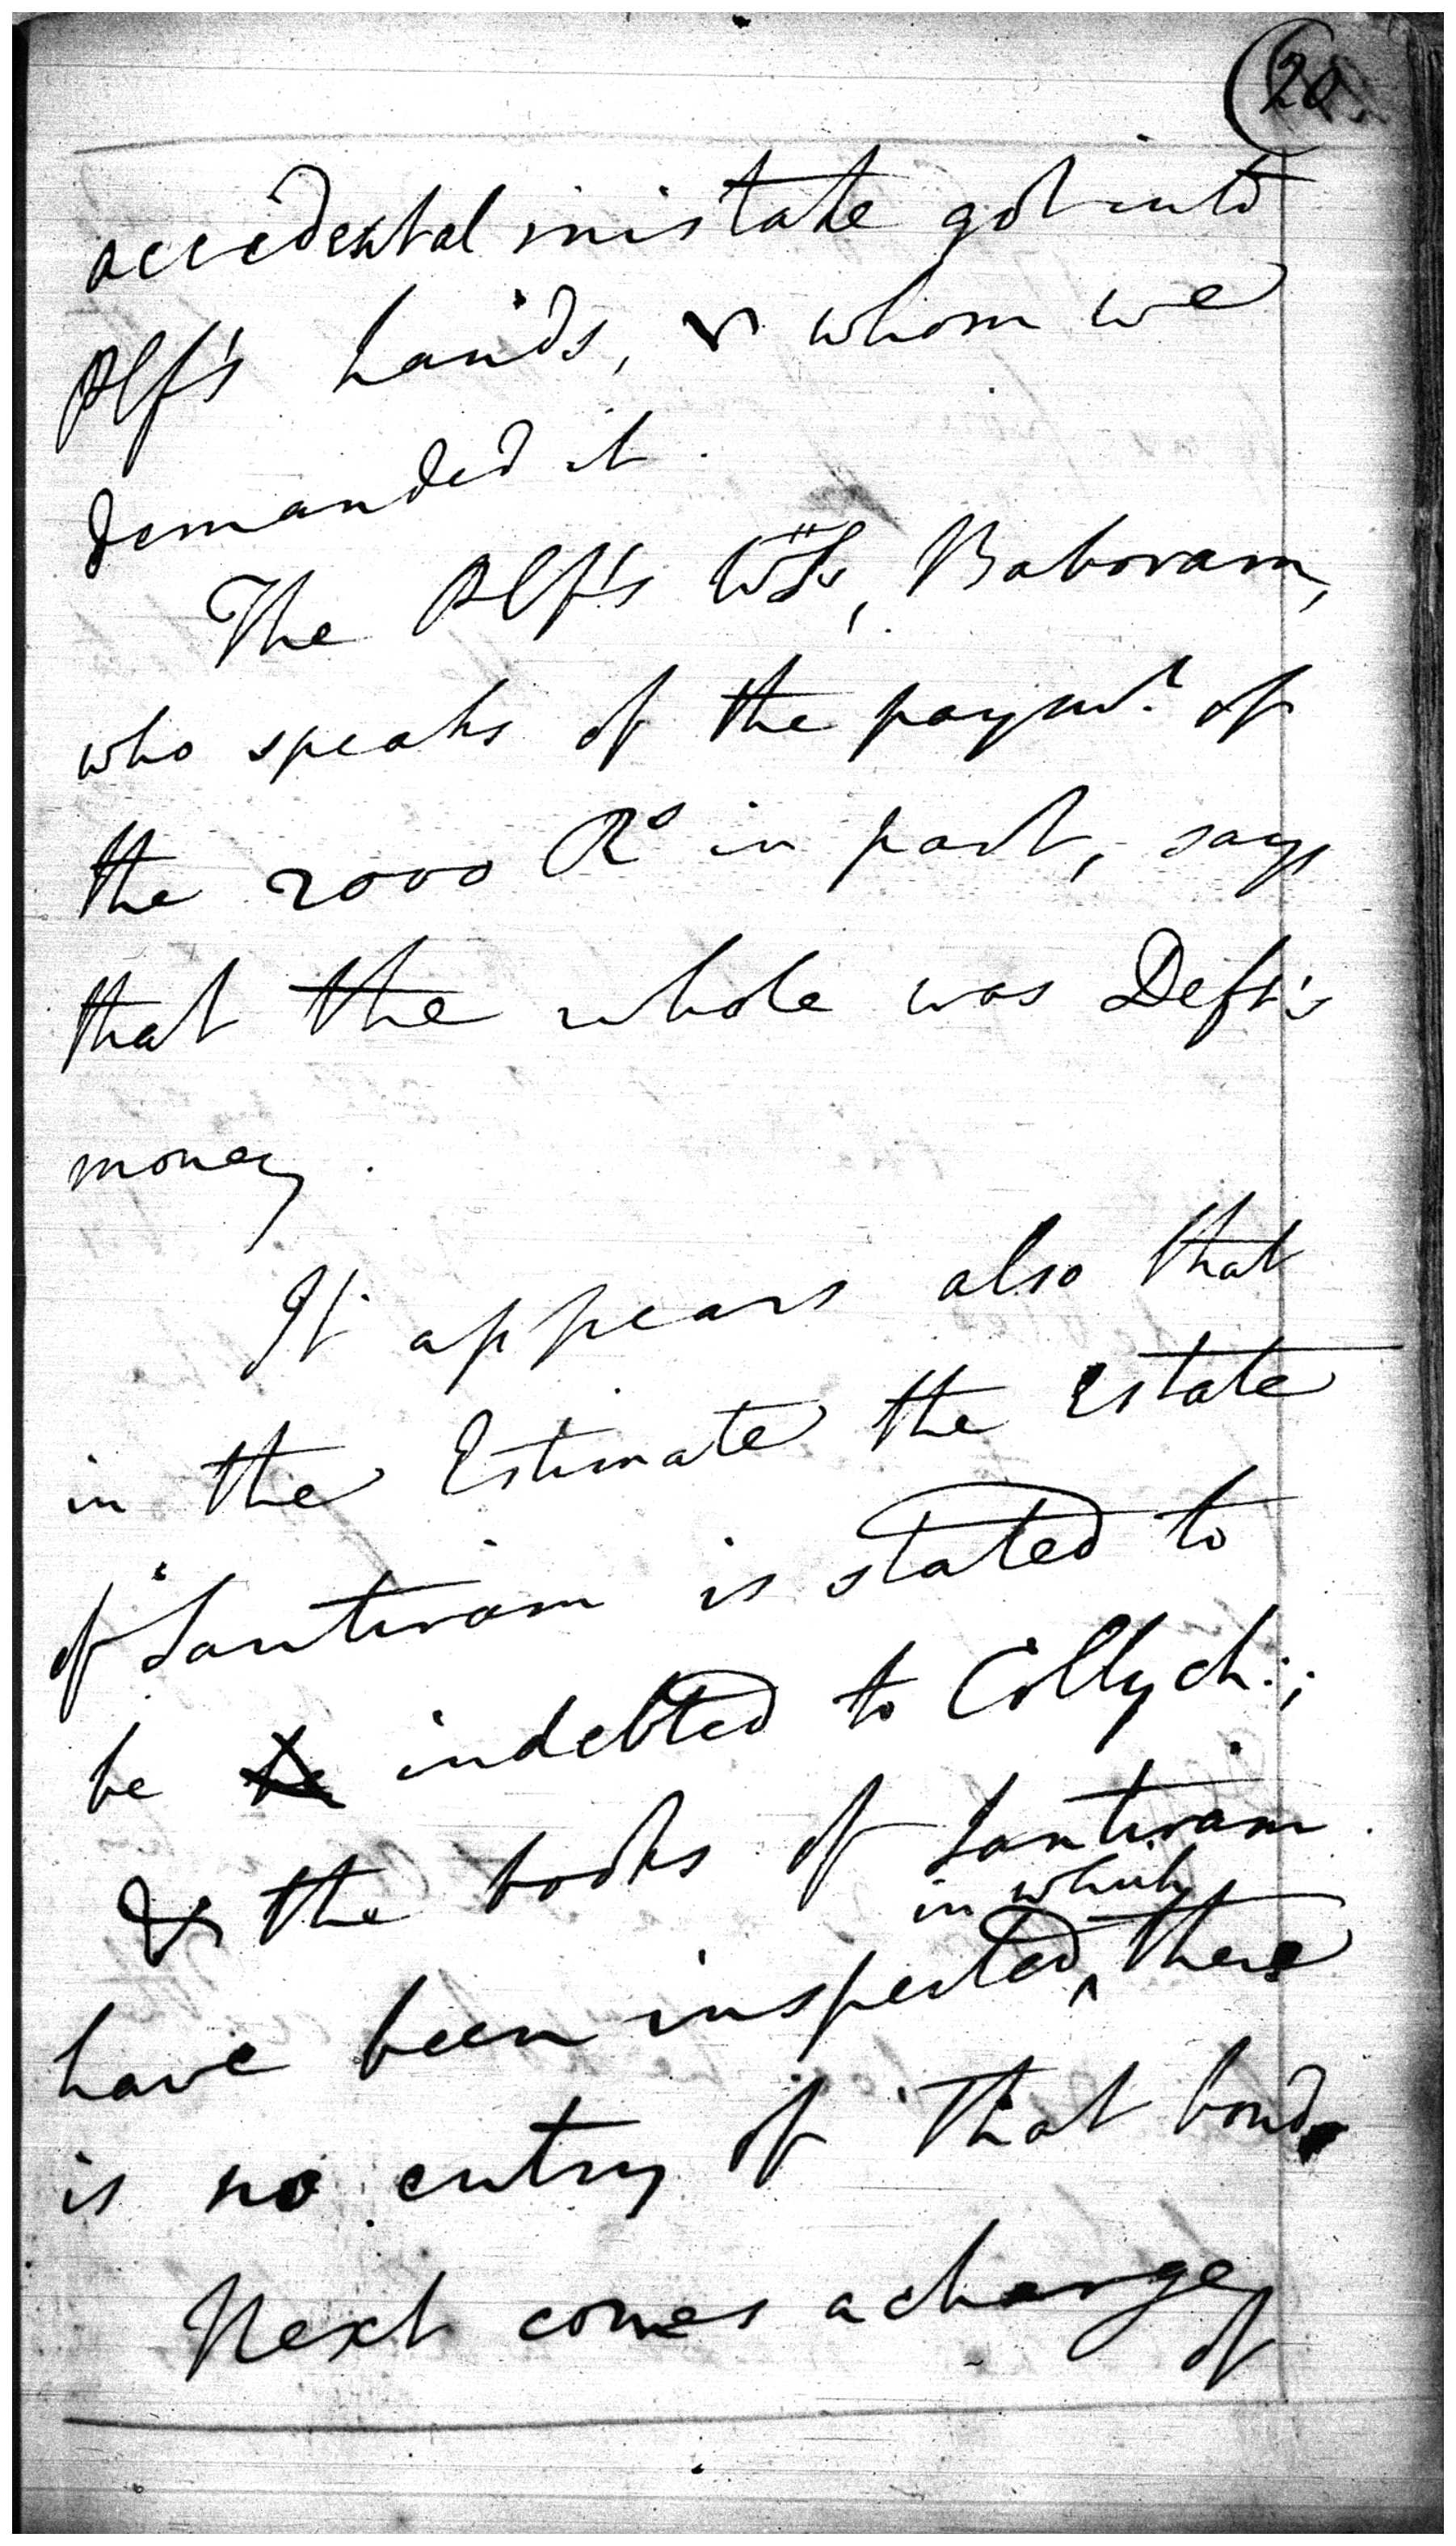 (20
accidental mistake got into
Plf's hands, & whom we
demanded it.
The Plf's Wss, Baboram,
who speaks of the paymt. of
the 2000 Rs in part, says
that the whole was Deft's
money.
It appears also that
in the Estimate the Estate
of Santiram is stated to
be indebted to Collych:;
& the books of Santiram
in which
have been inspected, there
is no entry of that bond.
Next comes a charge
of